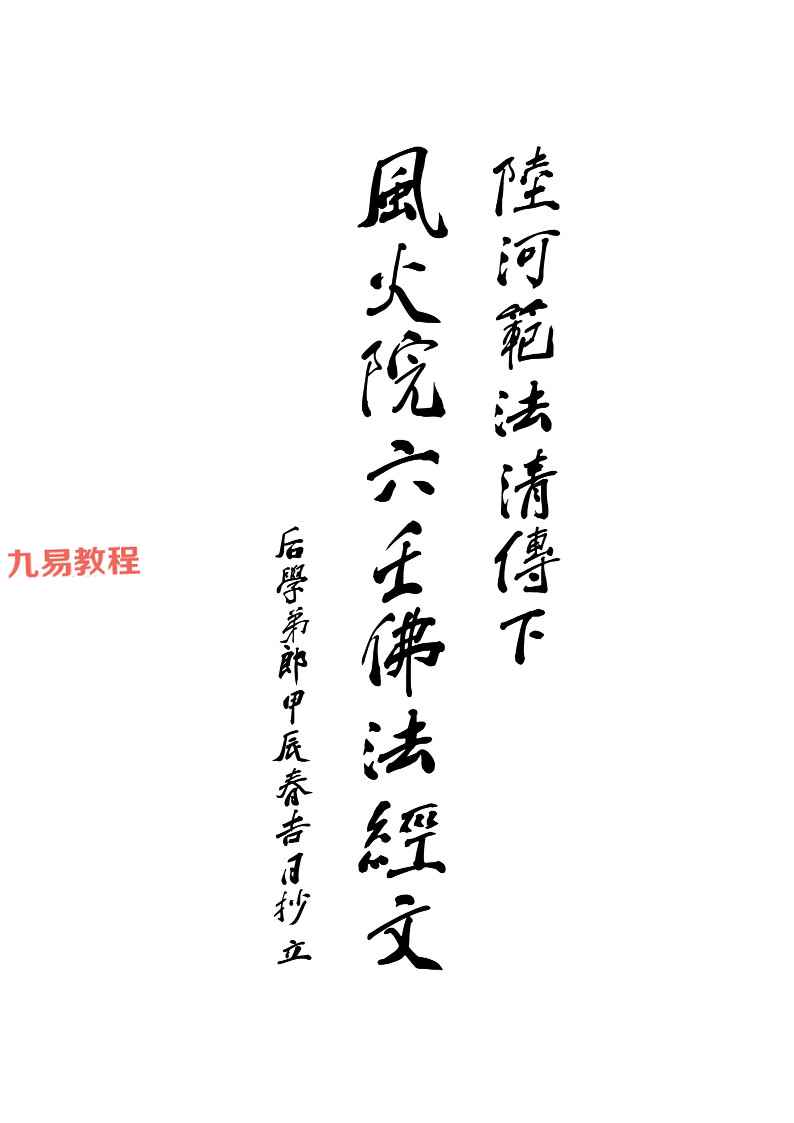 陸河範法清傳下
風火院六壬佛法經文
后學弟郎甲辰春吉日抄立
九易教程